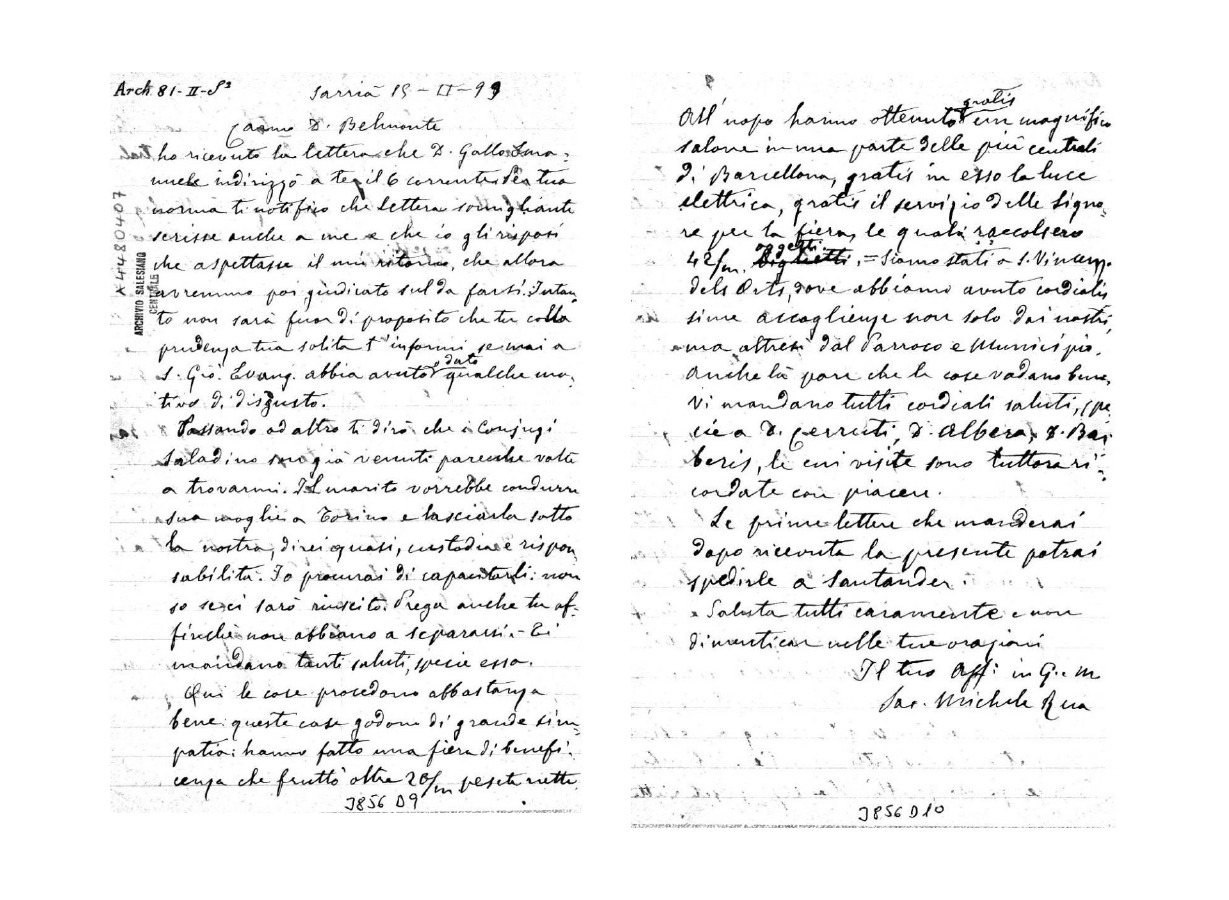 Arch 81-II-S²
Sarrià 15-II-99
Carmo D. Belmonte
ho ricevuto la lettera che D. Gallo Ema-
nuele indirizzò a te il 6 corrente. Per tua
norma ti notifico che lettera somigliante
scrisse anche a me e che io gli risposi
che aspettasse il mio ritorno, che allora
avremmo poi giudicato sul da farsi. Intan-
to non sarà fuor di proposito che tu colla
prudenza tua solita t'informi se mai a
S. Gio. Evang. abbia avuto o dato qualche mo-
tivo di disgusto.
Passando ad altro ti dirò che i Conjugi
Saladino son già venuti parecchie volte
a trovarmi. Il marito vorrebbe condurre
sua moglie a Torino e lasciarla sotto
la nostra, direi quasi, custodia e respon
sabilità. Io procurai di capacitarli: non
so se ci sarò riuscito. Prega anche tu af-
finchè non abbiano a separarsi. - Ti
mandano tanti saluti, specie essa.
Qui le cose procedono abbastanza
bene: queste case godono di grande sim
patia: hanno fatto una fiera di benefi-
cenza che fruttò oltre 20/m pesete nette.
J856 D9
X4480407
ARCHIVIO SALESIANO
CENTRALE
All'uopo hanno ottenuto gratis un magnifico
salone in una parte delle più centrali
di Barcellona, gratis in esso la luce
elettrica, gratis il servizio delle Signo-
re per la fiera, le quali raccolsero
42/m. oggetti. = Siamo stati a S. Vincenzo
dels Orts, dove abbiamo avuto cordialis
sime accoglienze non solo dai nostri,
ma altresì dal Parroco e Municipio.
Anche là pare che le cose vadano bene.
Vi mandano tutti cordiali saluti, spe
cie a D. Cerruti, D. Albera, D. Bar
beris, le cui visite sono tuttora ri-
cordate con piacere.
Le prime lettere che manderai
dopo ricevuta la presente potrai
spedirle a Santander.
Saluta tutti caramente e non
dimenticar nelle tue orazioni
Il tuo Aff: in G. e M
Sac. Michele Rua
J856 D10